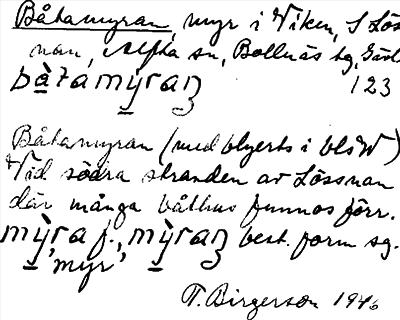 Båtamyran, myr i Viken, S Lös
nan, Alfta sn, Bollnäs tg, Gävl
bàtamýraṉ 123
Båtamyran (med blyerts i bls W)
Vid södra stranden av Lössnan
där många båthus funnos förr.
mỳra f., mỳraṉ best. form sg.
"myr"
T. Birgerson 1946